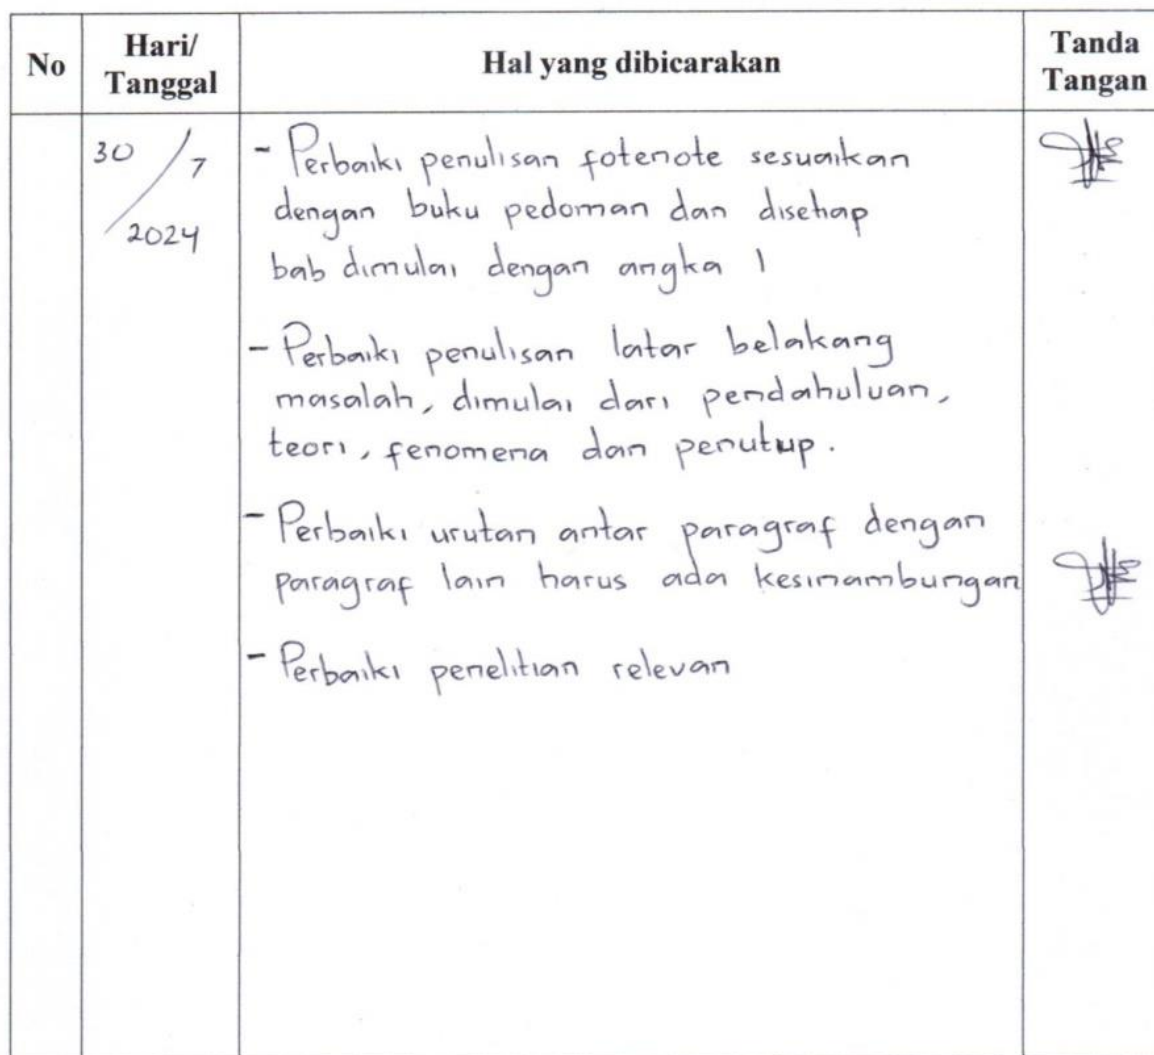 No
Hari/
Tanggal
Hal yang dibicarakan
Tanda
Tangan
30/7
2024
- Perbaiki penulisan fotenote sesuaikan
dengan buku pedoman dan disetiap
bab dimulai dengan angka 1
- Perbaiki penulisan latar belakang
masalah, dimulai dari pendahuluan,
teori, fenomena dan penutup.
- Perbaiki urutan antar paragraf dengan
paragraf lain harus ada kesinambungan
- Perbaiki penelitian relevan